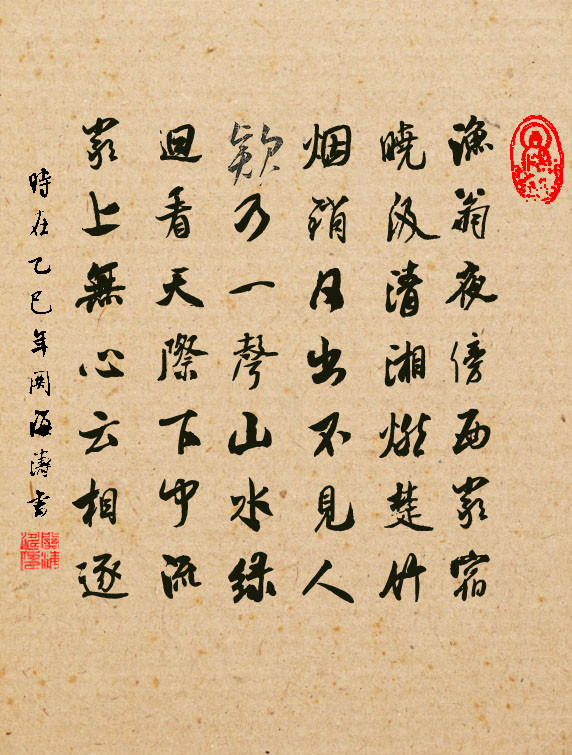 渔翁夜傍西岩宿
晓汲清湘燃楚竹
烟销日出不见人
欸乃一声山水绿
迴看天際下中流
岩上無心云相逐
時在乙巳年関海涛書